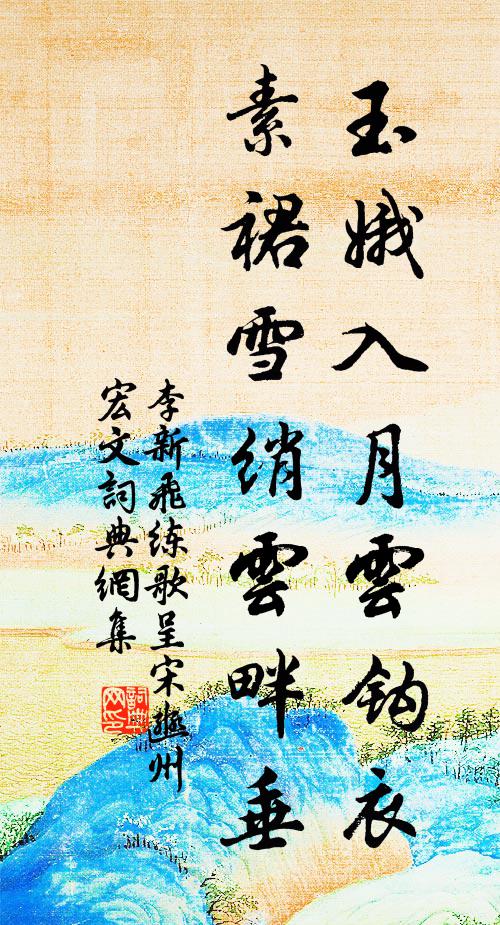 玉娥入月雲鈎衣
素裙雪綃雲畔垂
李新飛練歌呈宋遂州
宏文詞典網集